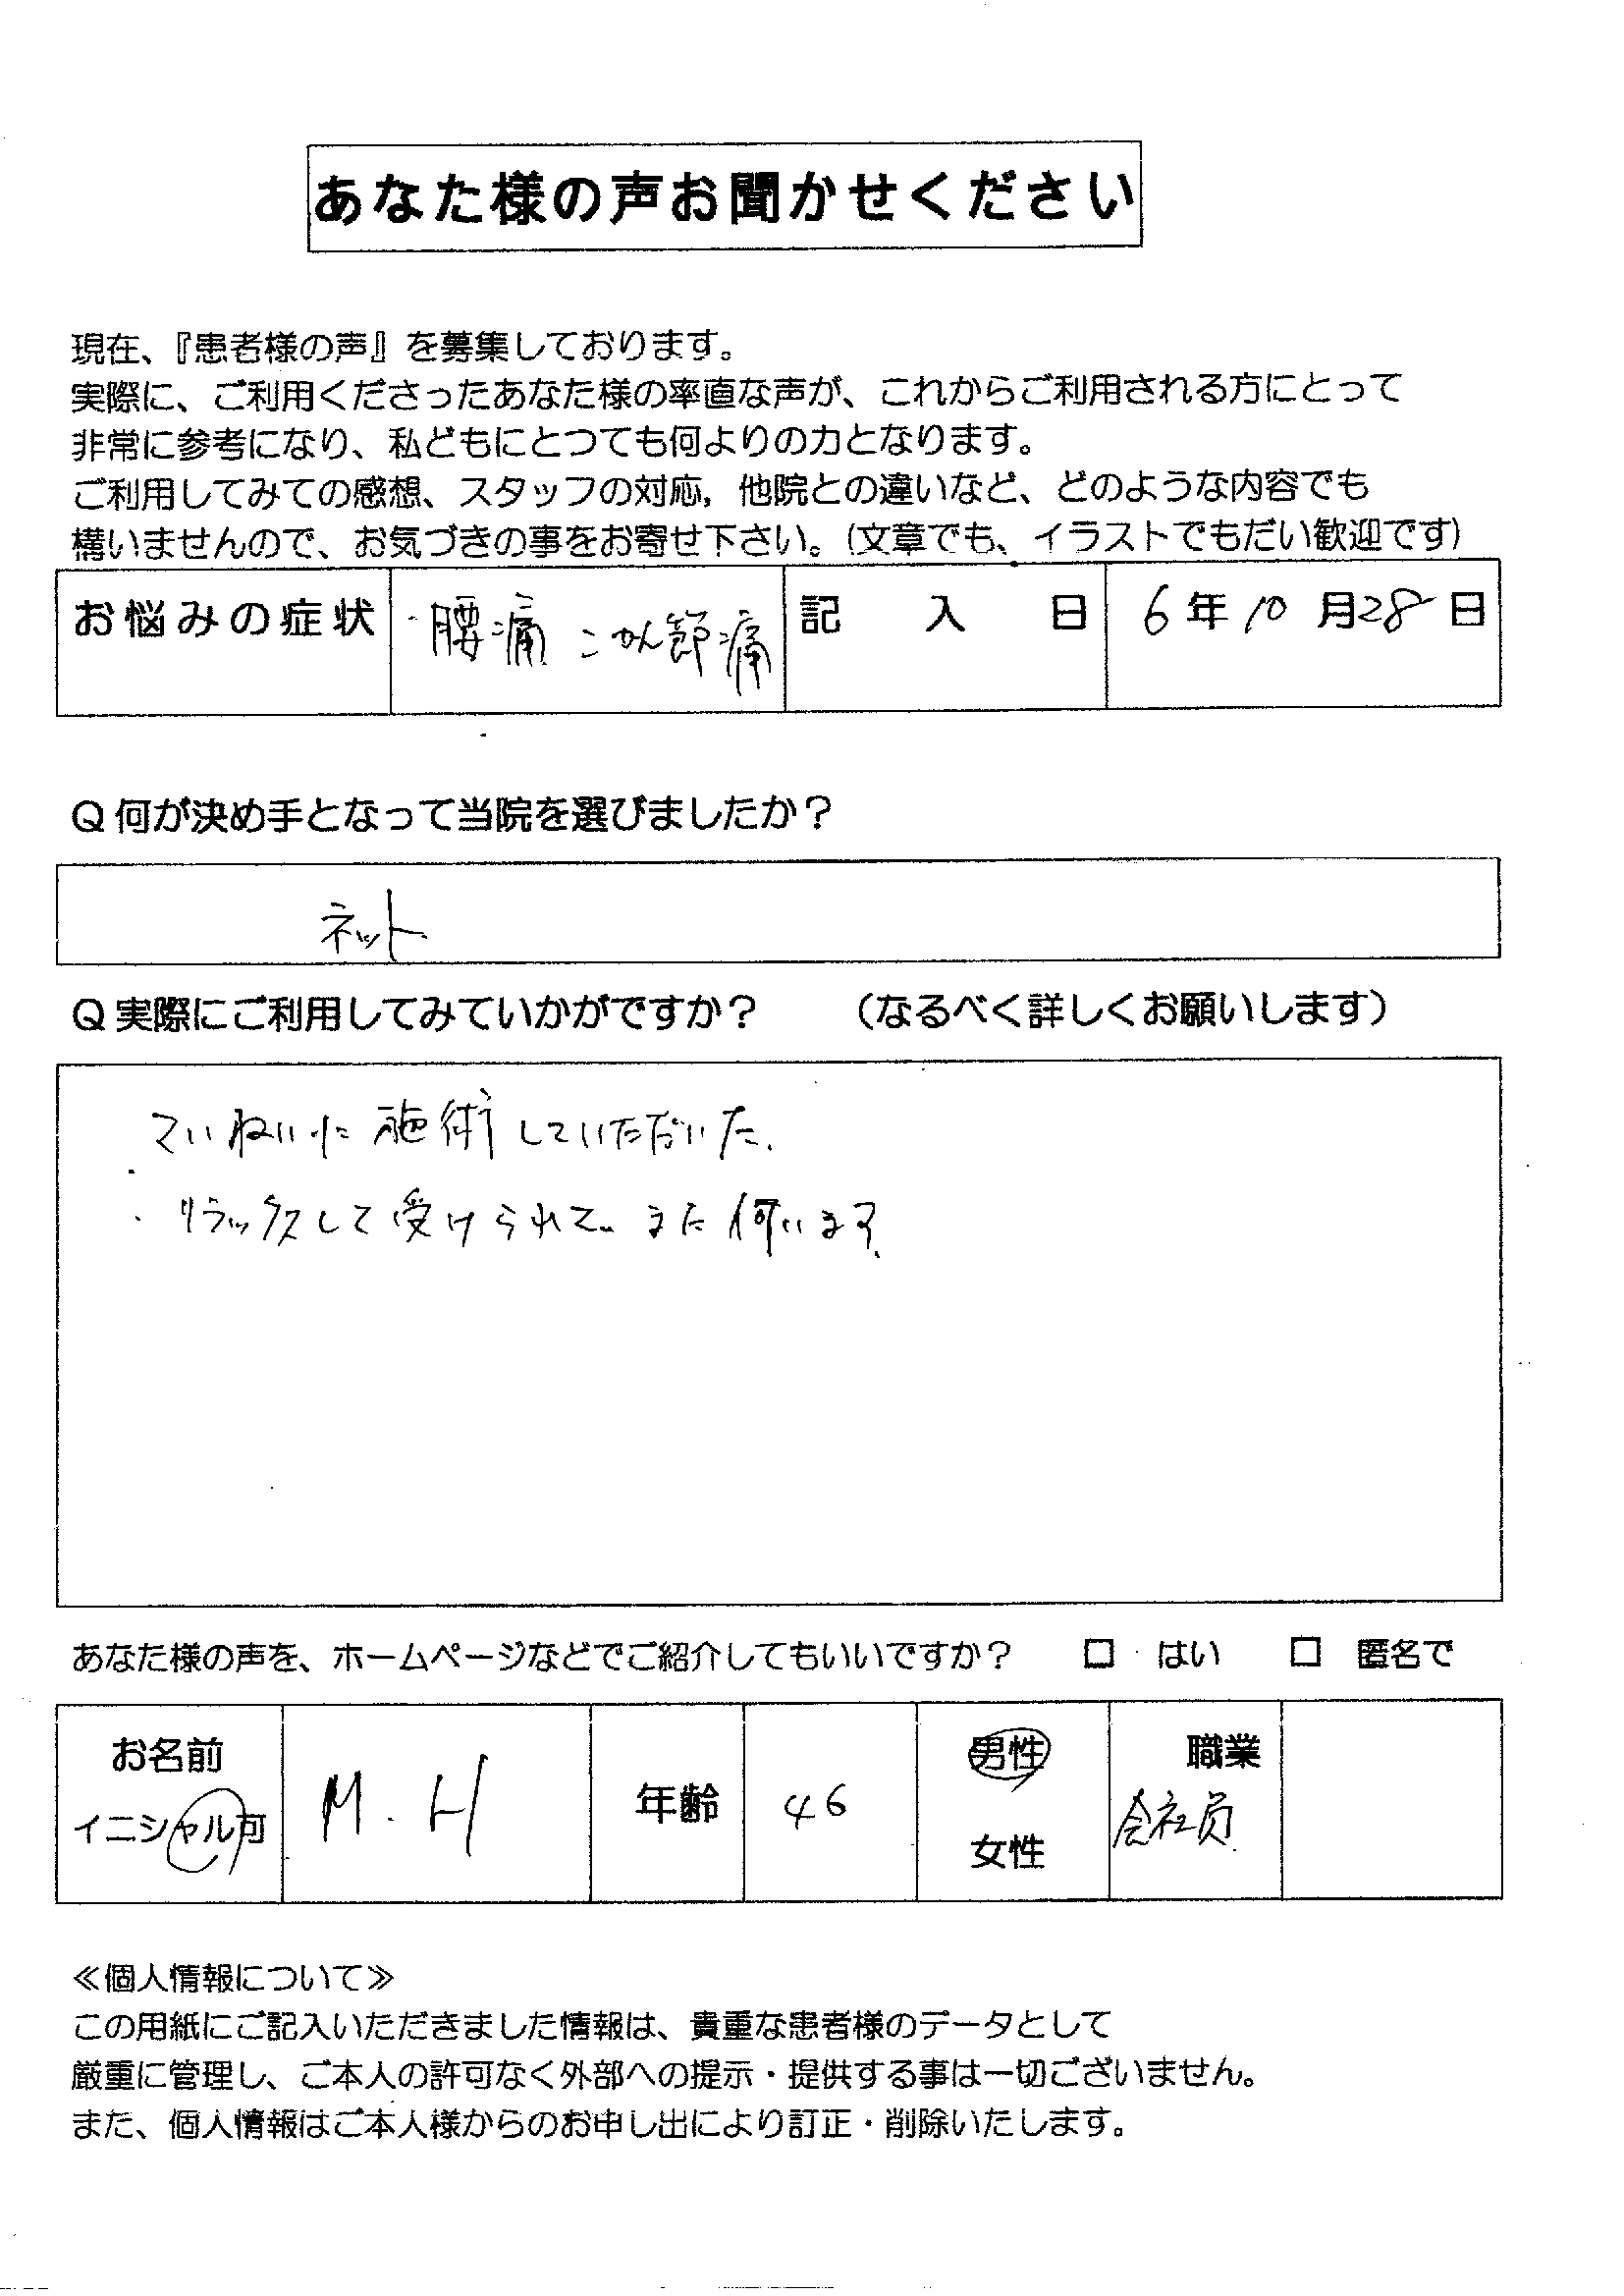 あなた様の声お聞かせください
現在、『患者様の声』を募集しております。
実際に、ご利用くださったあなた様の率直な声が、これからご利用される方にとって
非常に参考になり、私どもにとつても何よりの力となります。
ご利用してみての感想、スタッフの対応，他院との違いなど、どのような内容でも
構いませんので、お気づきの事をお寄せ下さい。(文章でも、イラストでもだい歓迎です)
お悩みの症状 腰痛 こかん節痛 記入日 6年10月28日
Q何が決め手となって当院を選びましたか？
ネット
Q実際にご利用してみていかがですか？ （なるべく詳しくお願いします）
ていねいに施術していただいた.
リラックスして受けられて、また伺います.
あなた様の声を、ホームページなどでご紹介してもいいですか？ □ はい □ 匿名で
お名前 イニシャル可 M.H 年齢 46 男性 女性 職業 会社員
≪個人情報について≫
この用紙にご記入いただきました情報は、貴重な患者様のデータとして
厳重に管理し、ご本人の許可なく外部への提示・提供する事は一切ございません。
また、個人情報はご本人様からのお申し出により訂正・削除いたします。